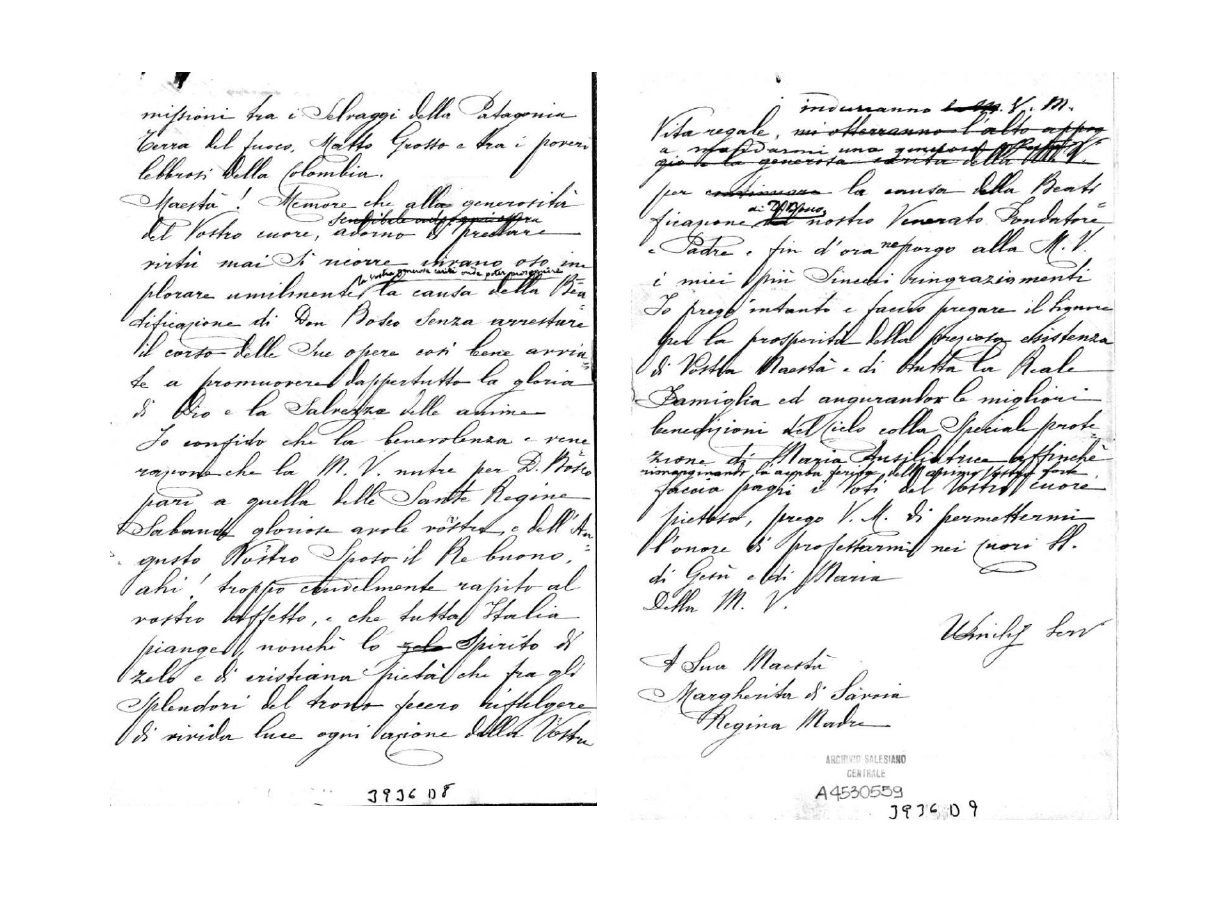 missioni tra i Selvaggi della Patagonia
Terra del fuoco, Matto Grosso e tra i poveri
lebbrosi della Colombia.
Maestà! Memore che alla generosità
del Vostro cuore, adorno di preclare
virtù mai si ricorre invano oso im
plorare umilmente la causa della Bea
tificazione di Don Bosco senza arrestare
il corso delle Sue opere così bene avvia
te a promuovere dappertutto la gloria
di Dio e la Salvezza delle anime
Io confido che la benevolenza e vene
razione che la M. V. nutre per D. Bosco
pari a quella delle Sante Regine
Sabaude gloriose avole vostre, e dell'Au-
gusto Vostro Sposo il Re buono,
ahi! troppo crudelmente rapito al
vostro affetto, e che tutta Italia
piange, nonchè lo zelo Spirito di
zelo e di cristiana pietà che fra gli
Splendori del trono fecero rifulgere
di vivida luce ogni azione della Vostra
3936 D8
indurranno la M. V. M.
Vita regale, mi otterranno l'alto appog
gio e la generosa carità della
per continuare la causa della Beati
di D. Bosco
ficazione nostro Venerato Fondatore
e Padre e fin d'ora ne porgo alla M. V.
i miei più Sinceri ringraziamenti
Io prego intanto e faccio pregare il Signore
per la prosperità della preziosa esistenza
di Vostra Maestà e di tutta la Reale
Famiglia ed augurando le migliori
benedizioni del Cielo colla Speciale prote-
zione di Maria Ausiliatrice affinchè
rimarginando la acerba ferita dell'animo Vostro
faccia paghi i Voti del Vostro cuore
pietoso, prego V. M. di permettermi
l'onore di professarmi nei Cuori SS.
di Gesù e di Maria
Della M. V.
Umile Serv
A Sua Maestà
Margherita di Savoia
Regina Madre
ARCHIVIO SALESIANO
CENTRALE
A4530559
3936 D9